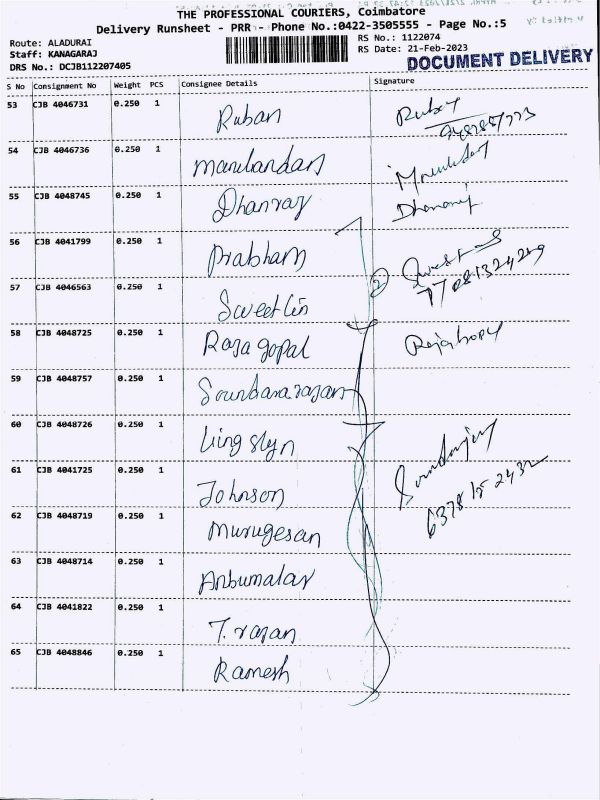 THE PROFESSIONAL COURIERS, Coimbatore
Delivery Runsheet - PRR - Phone No.:0422-3505555 - Page No.:5
Route: ALADURAI
Staff: KANAGARAJ
DRS No.: DCJB112207405
RS No.: 1122074
RS Date: 21-Feb-2023
DOCUMENT DELIVERY
S No Consignment No Weight PCS Consignee Details Signature
53 CJB 4046731 0.250 1 Ruban
54 CJB 4046736 0.250 1
55 CJB 4048745 0.250 1 Dhanraj
56 CJB 4041799 0.250 1 Prabham
57 CJB 4046563 0.250 1 Sweetlin
58 CJB 4048725 0.250 1 Rajagopal
59 CJB 4048757 0.250 1 Soundararajan
60 CJB 4048726 0.250 1 lingslyn
61 CJB 4041725 0.250 1 Johnson
62 CJB 4048719 0.250 1 Murugesan
63 CJB 4048714 0.250 1 Anbumalar
64 CJB 4041822 0.250 1 T. rajan
65 CJB 4048846 0.250 1 Ramesh